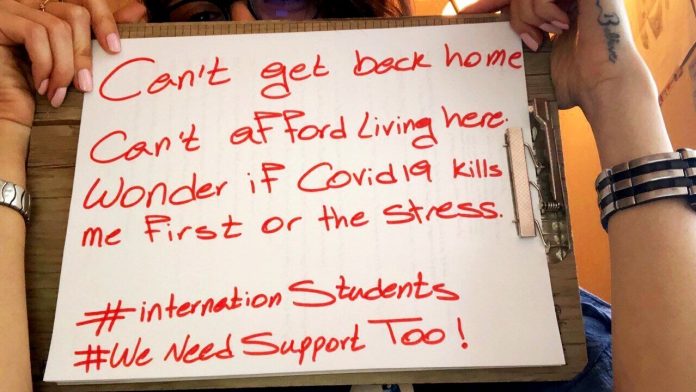 Can't get back home
Can't afford Living here.
Wonder if Covid19 kills
me First or the stress.
#internation Students
#We Need Support Too!